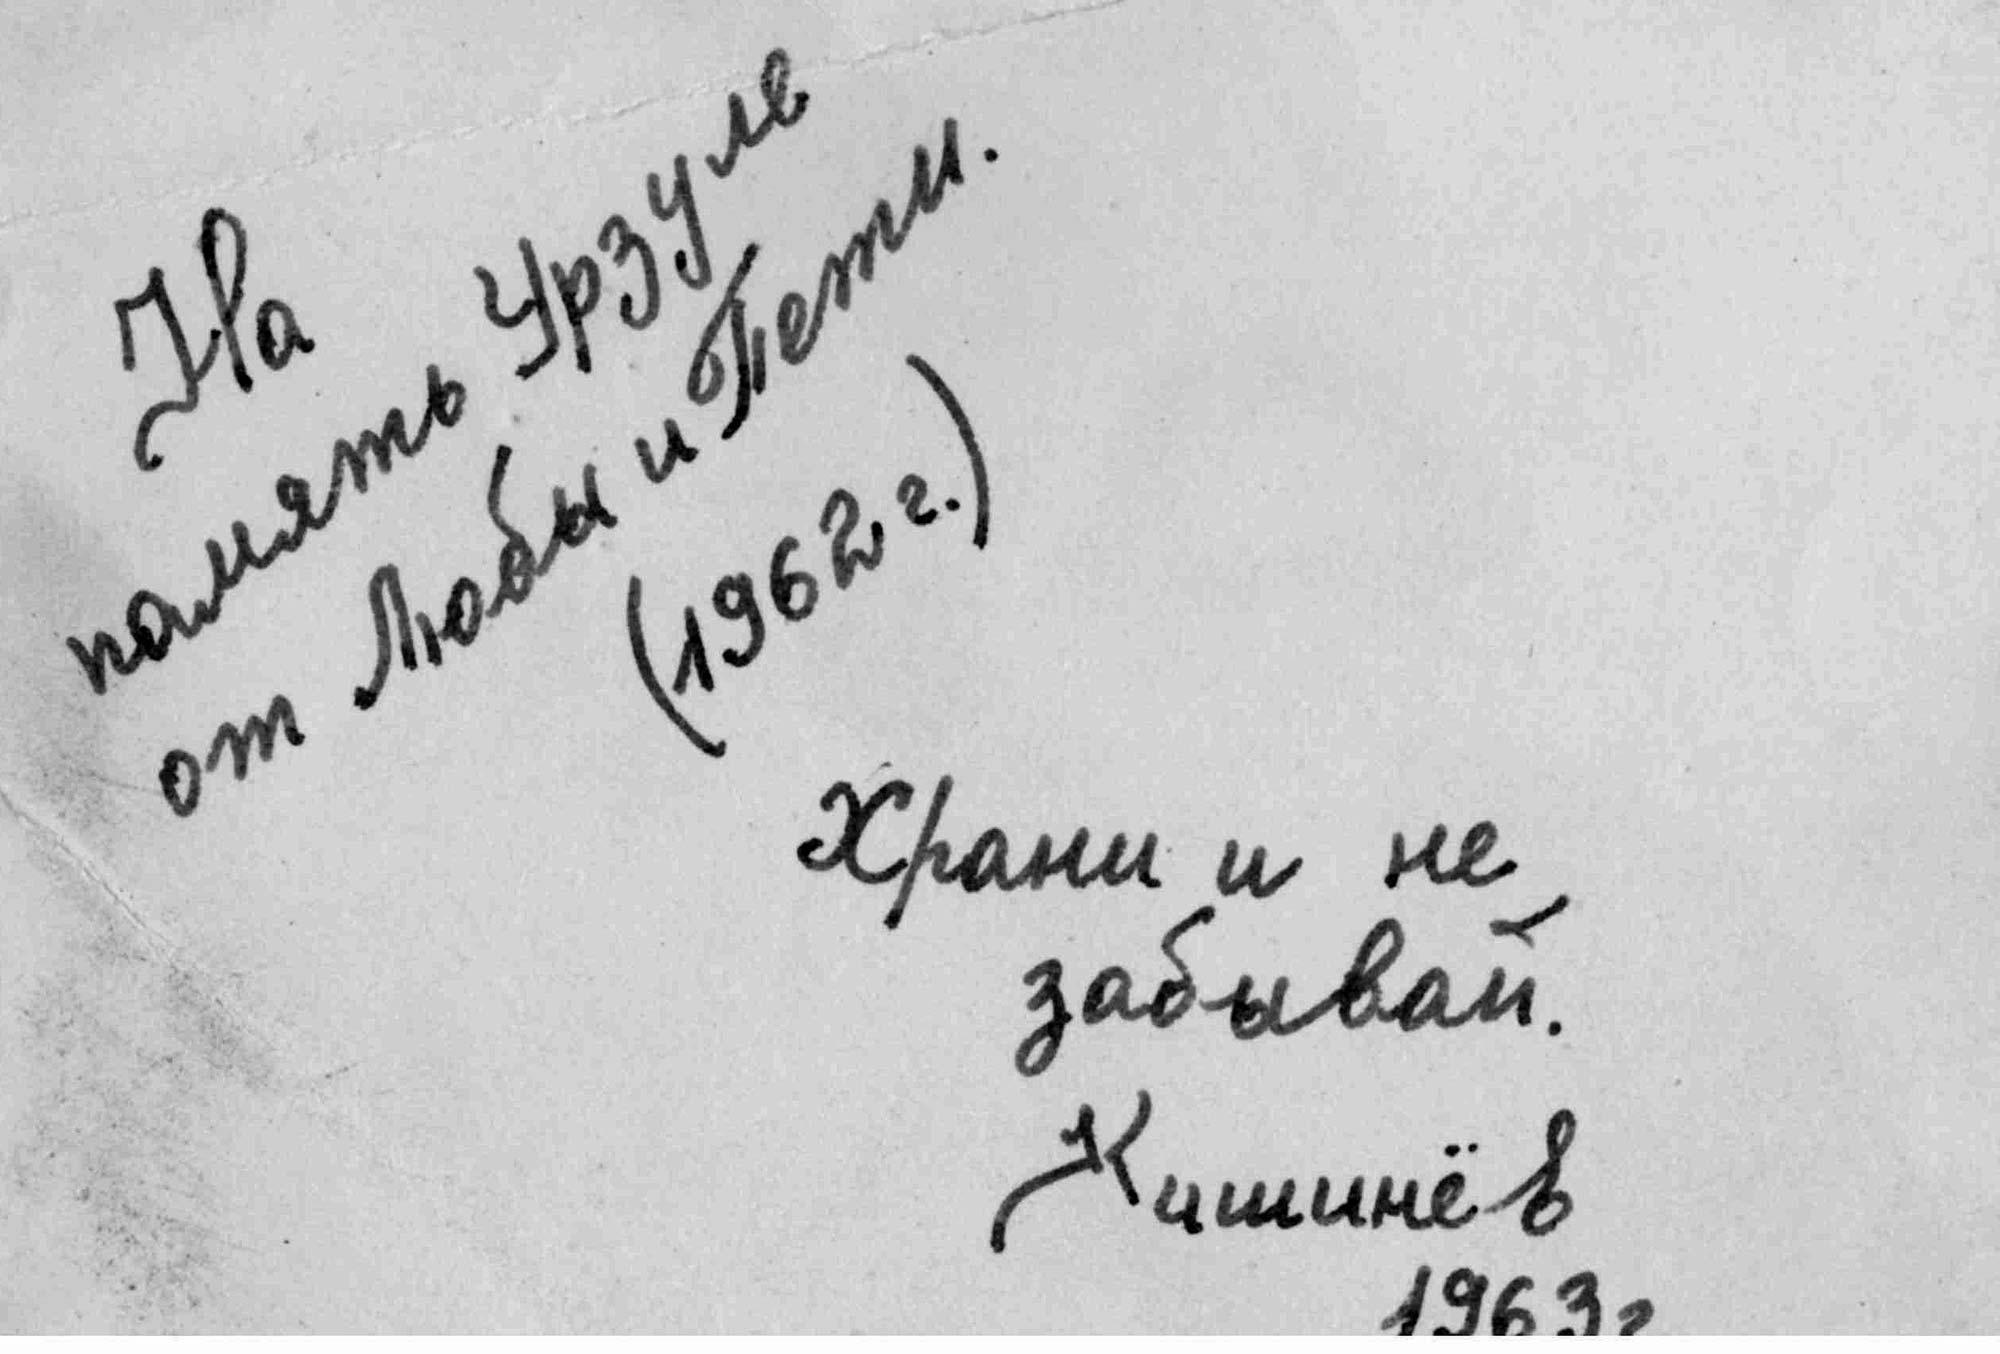 На
память Урзуле
от Любы и Пети.
(1962 г.)
Храни и не
забывай.
Кишинёв
1963г